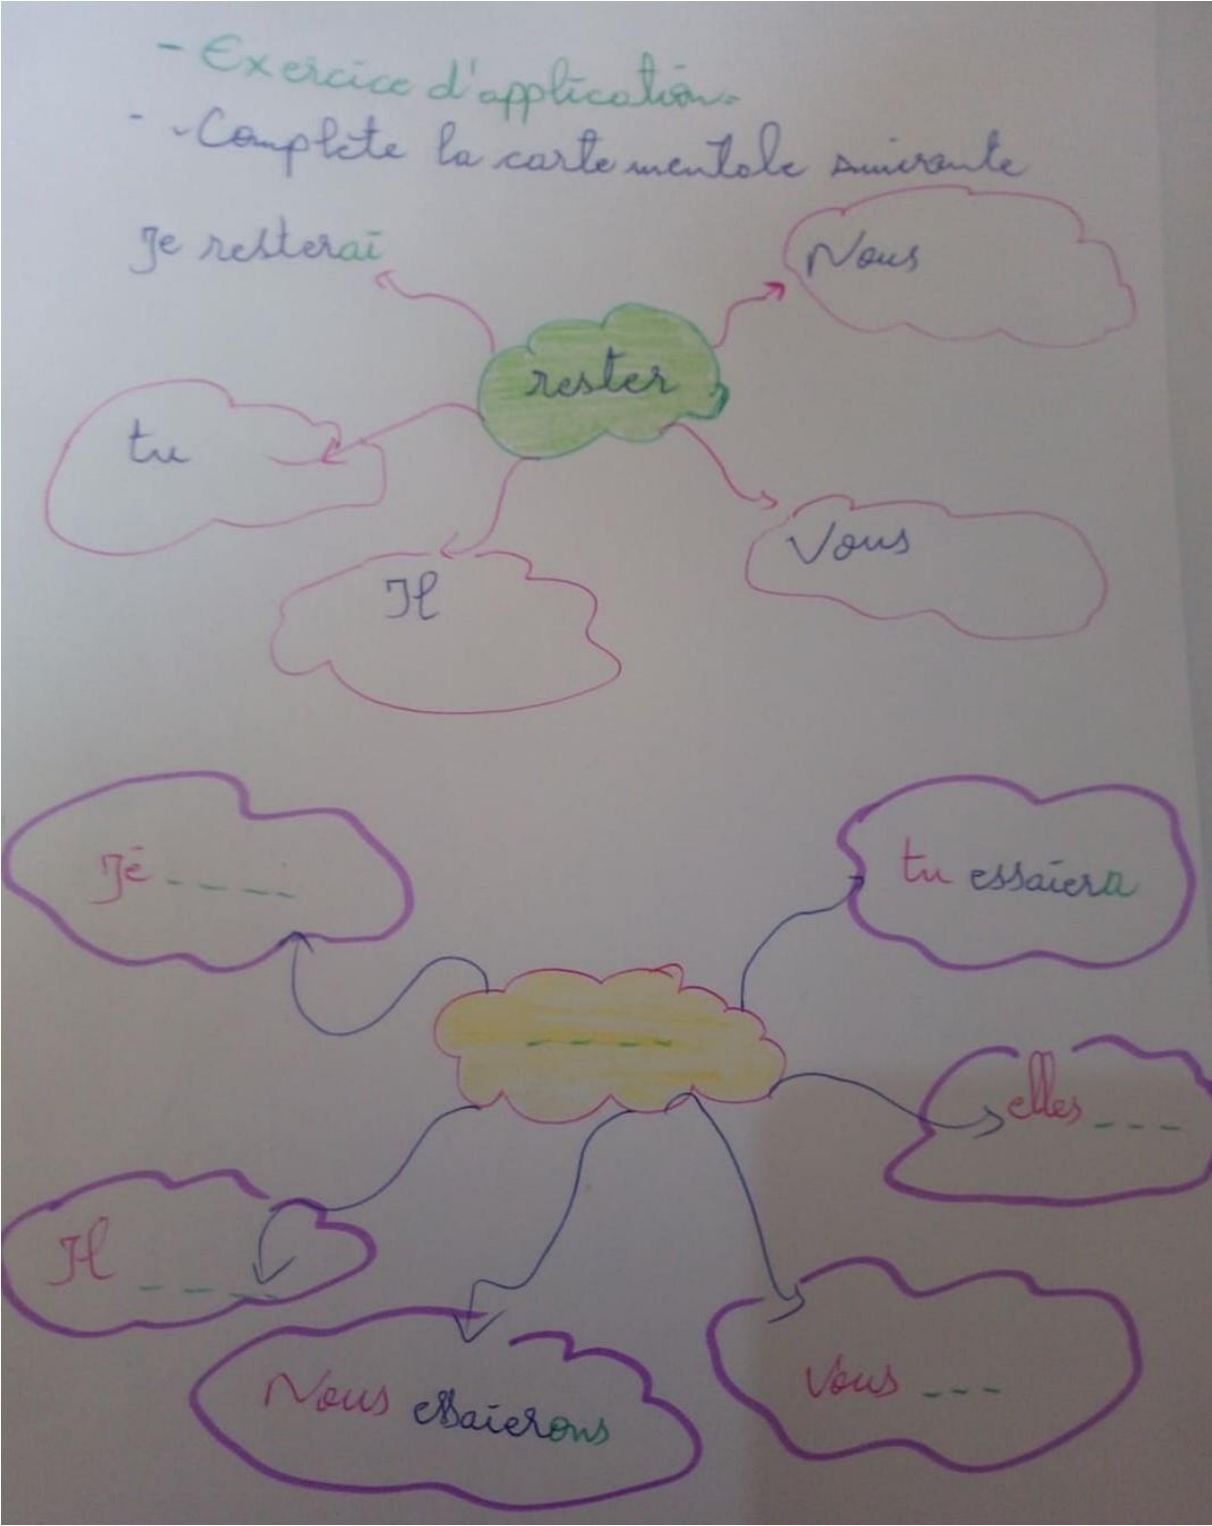 - Exercice d'application.
- Complète la carte mentale suivante
Je resterai
Nous
rester
tu
Vous
Il
Je ----
tu essaiera
----
elles ---
Il ----
Vous ---
Nous essaierons